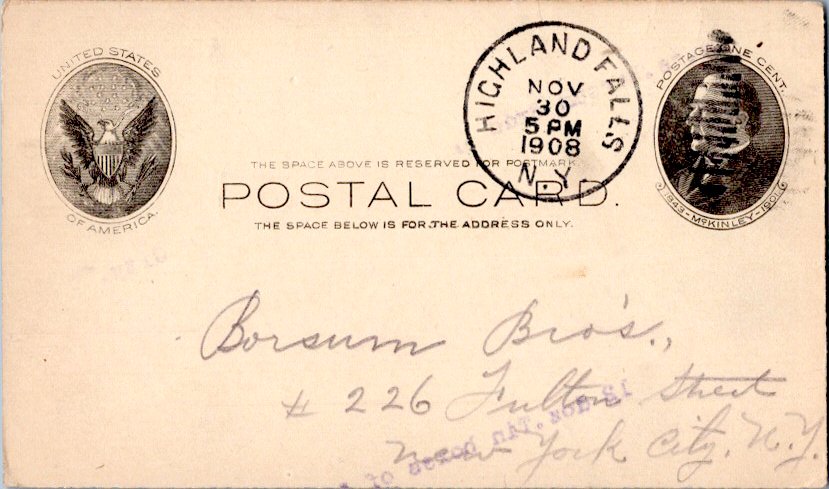 UNITED STATES
OF AMERICA.
HIGHLAND FALLS
NOV
30
5 PM
1908
N.Y.
POSTAGE ONE CENT.
1843-McKINLEY-1901
THE SPACE ABOVE IS RESERVED FOR POSTMARK.
POSTAL CARD.
THE SPACE BELOW IS FOR THE ADDRESS ONLY.
Borsum Bro's.,
# 226 Fulton Street
New York City. N.Y.